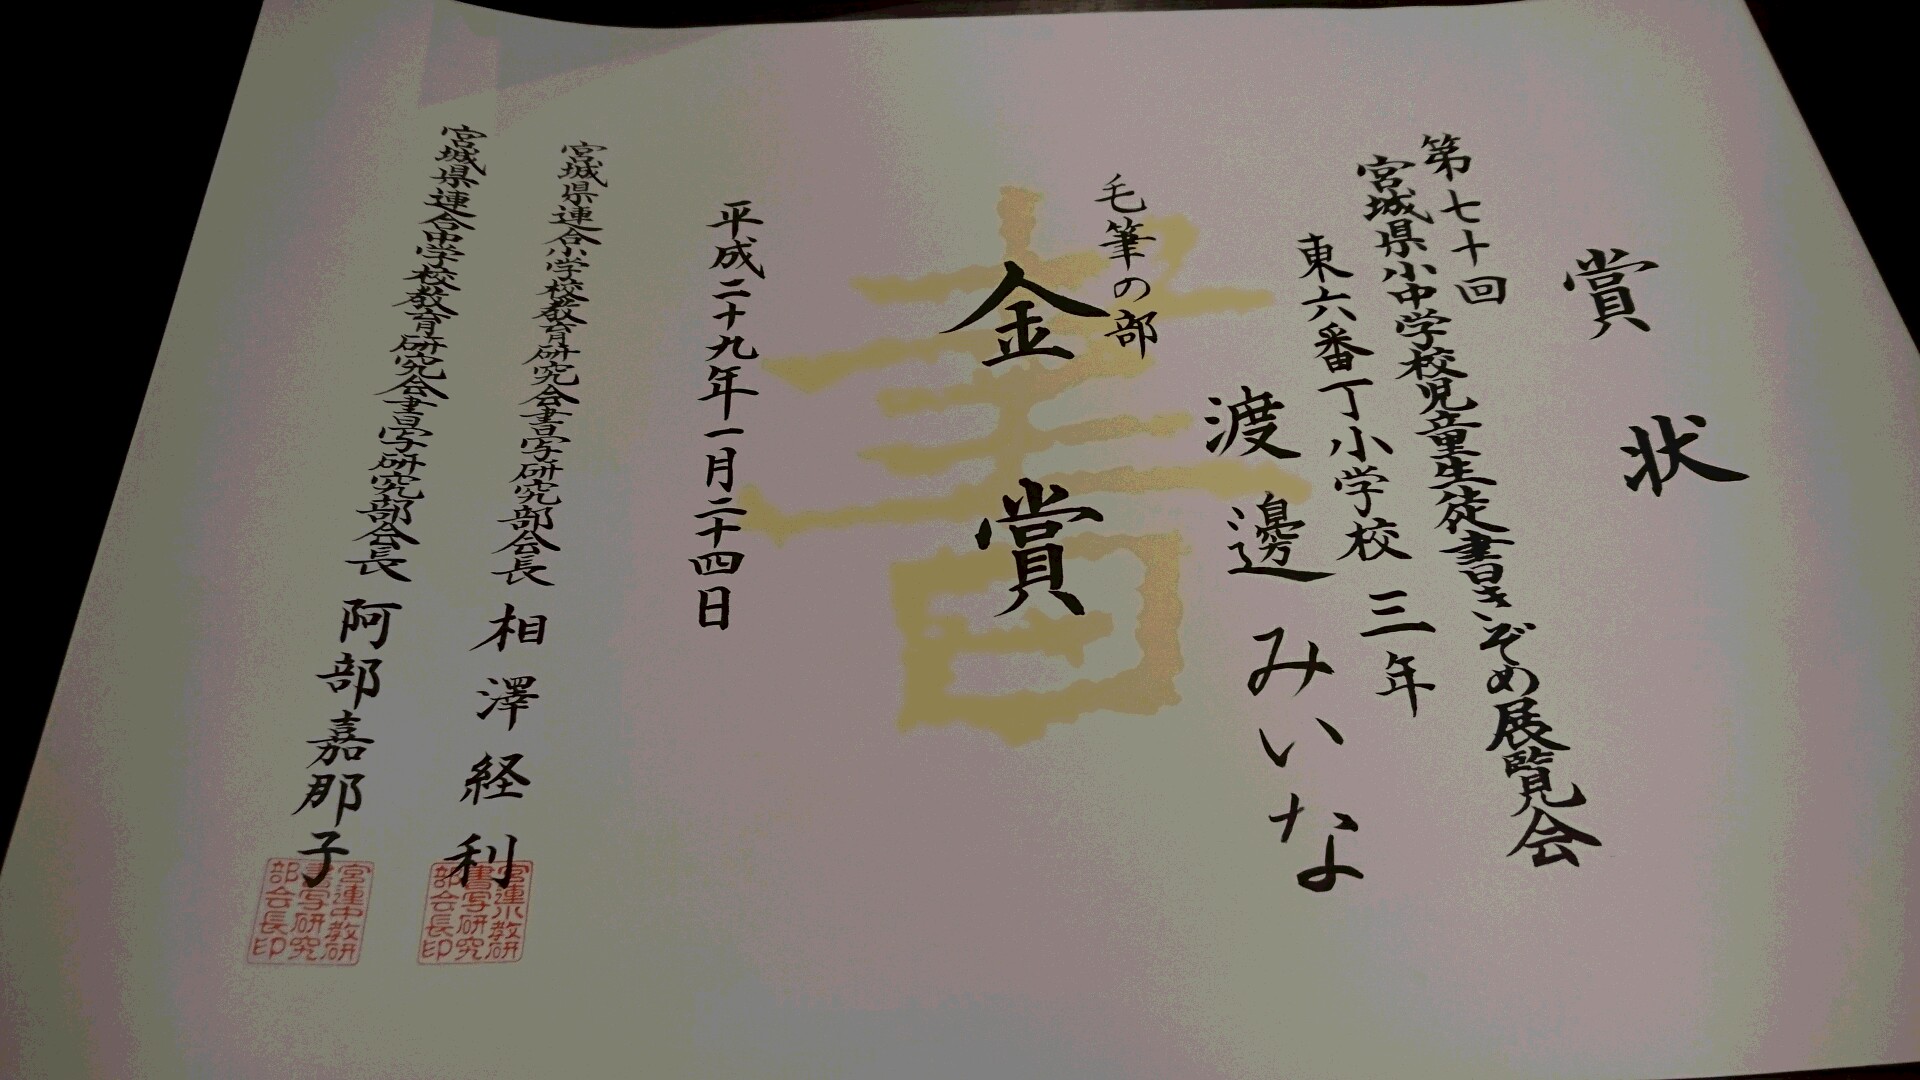 賞状
第七十回
宮城県小中学校児童生徒書きぞめ展覧会
東六番丁小学校 三年
渡邊みいな
毛筆の部
金賞
書
平成二十九年一月二十四日
宮城県連合小学校教育研究会書写研究部会長 相澤経利
宮連小教研
書写研究
部会長印
宮城県連合中学校教育研究会書写研究部会長 阿部嘉那子
宮連中教研
書写研究
部会長印